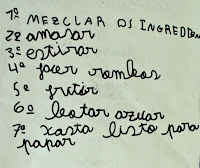 1º MEZCLAR OS INGREDIEN
2º amasar
3º estirar
4º facer rombos
5º fretir
6º botar azucar
7º xasta listo para
papar